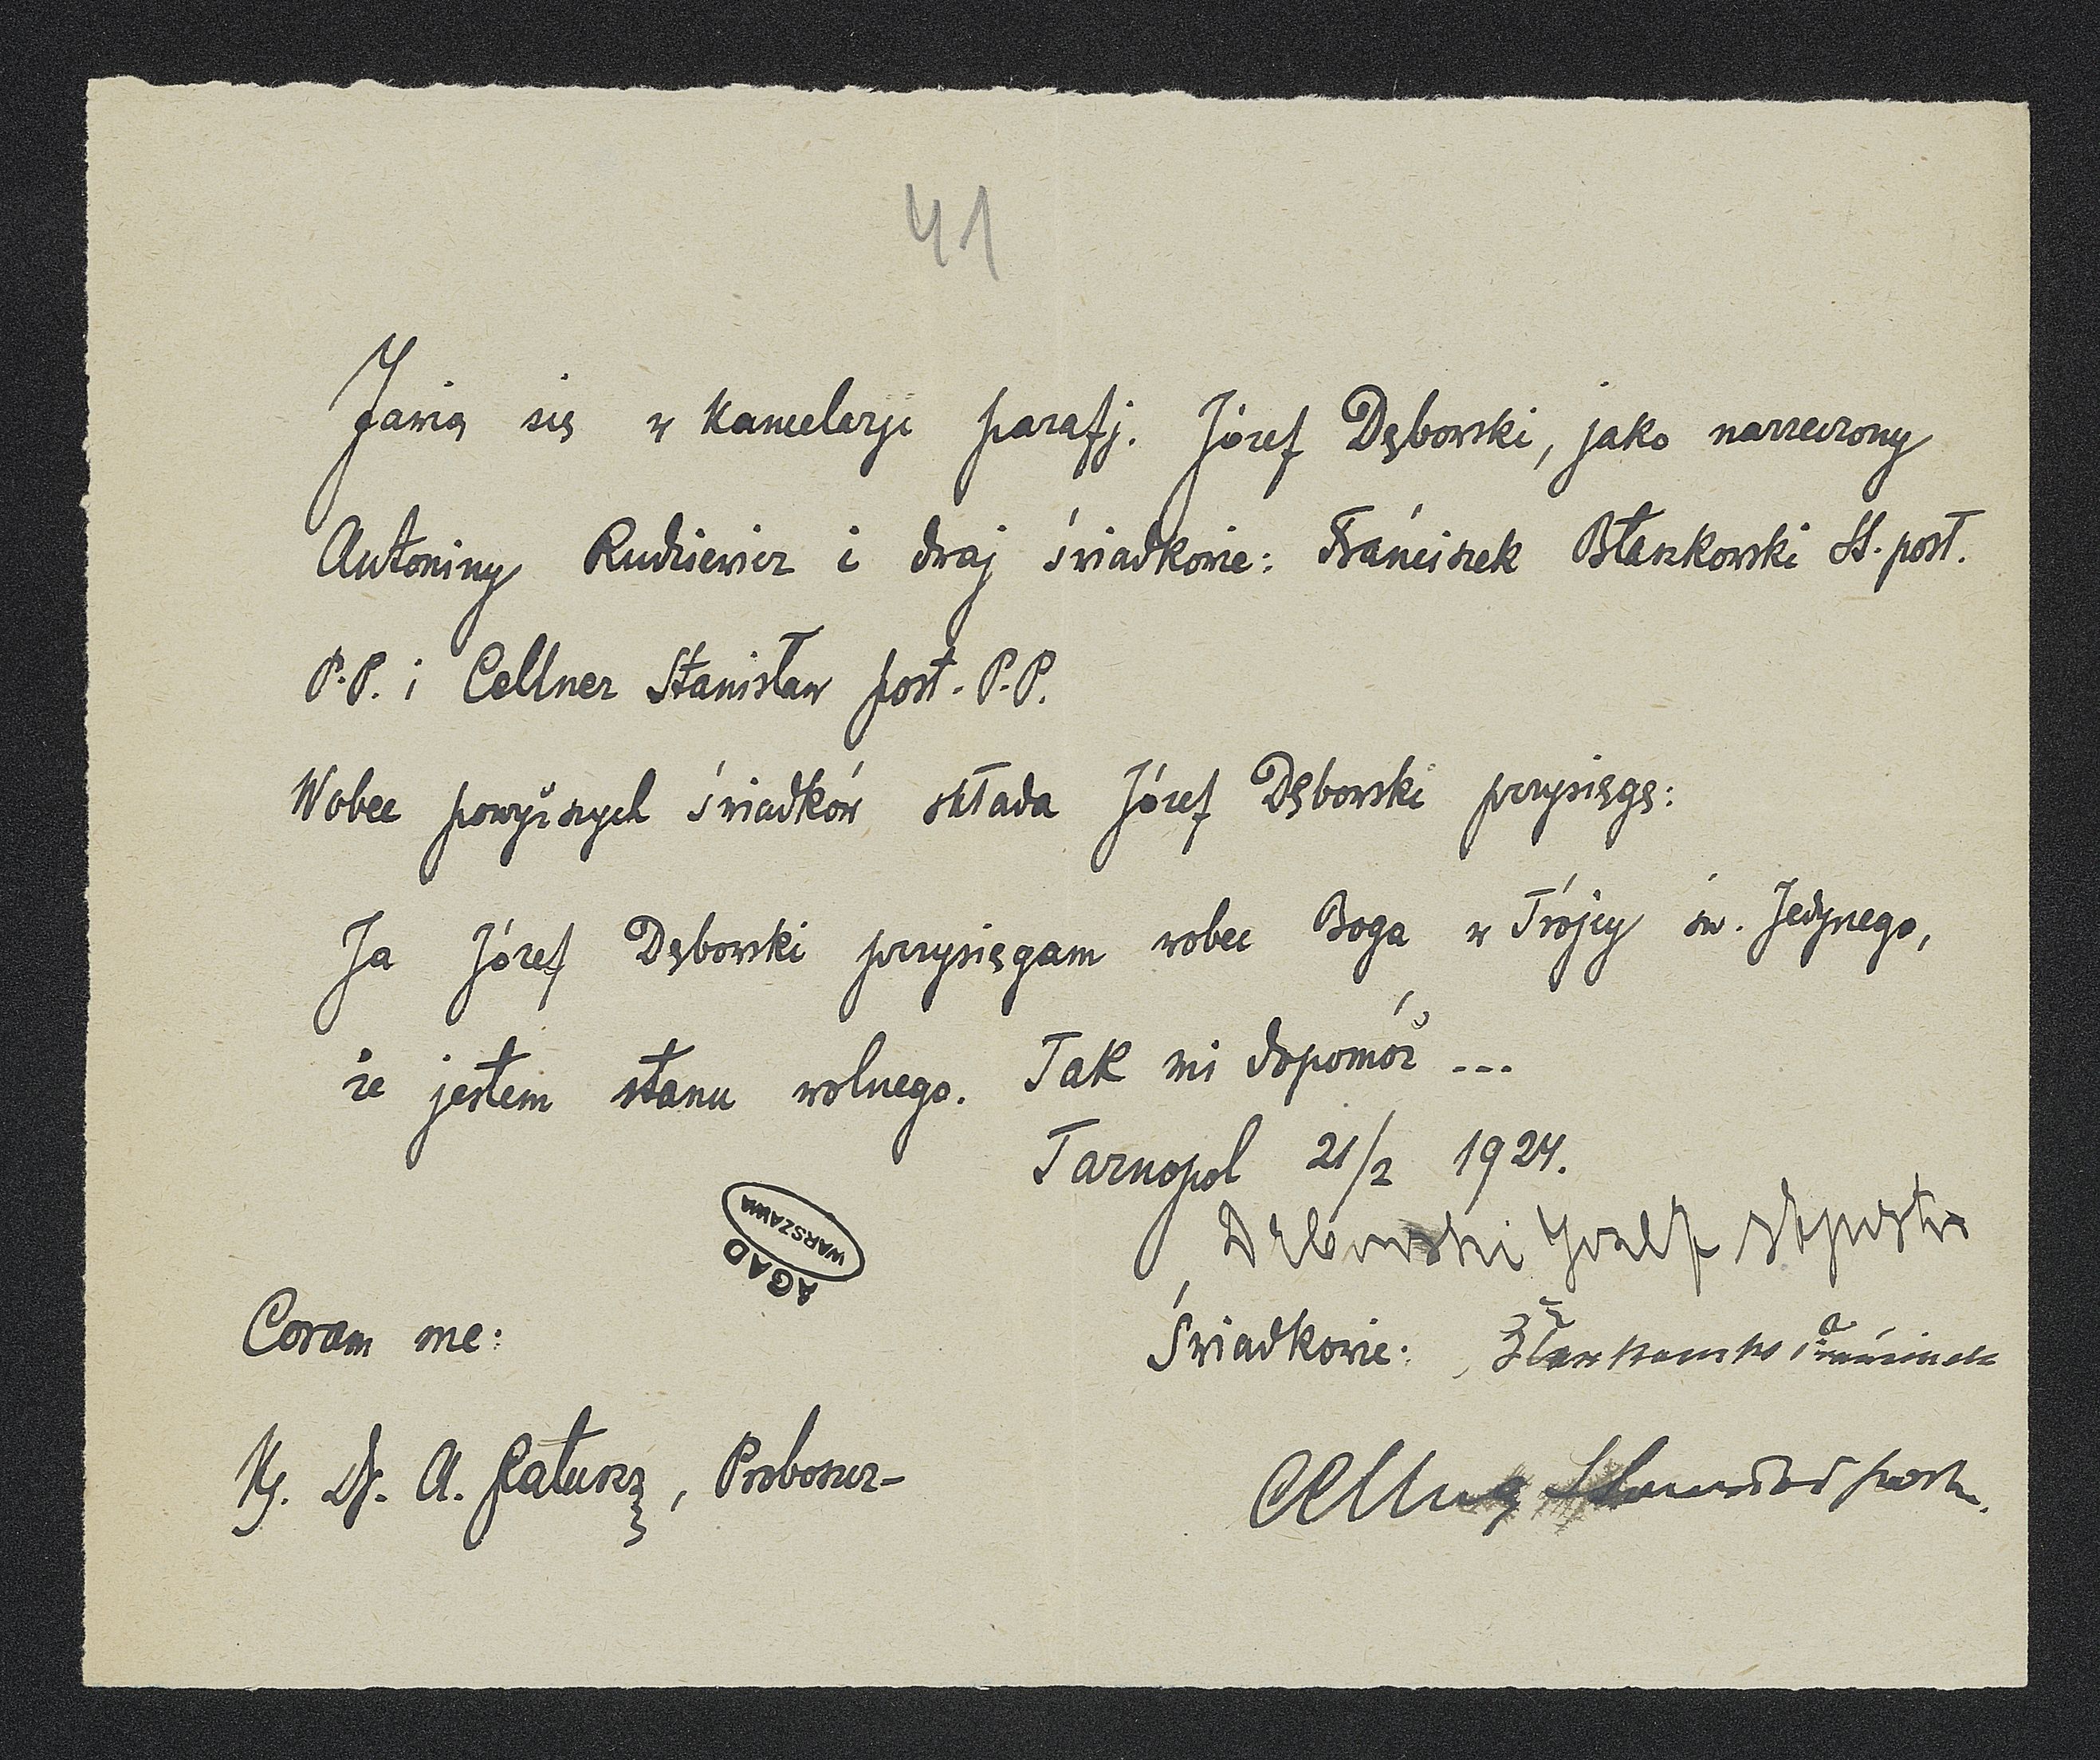 41
Jawią się w kancelarji parafj. Józef Dębowski, jako narzeczony
Antoniny Rudziewicz i dwaj świadkowie: Franciszek Błaszkowski St. post.
P.P. i Cellner Stanisław post. P.P.
Wobec powyższych świadków składa Józef Dębowski przysięgę:
Ja Józef Dębowski przysięgam wobec Boga w Trójcy św. Jedynego,
że jestem stanu wolnego. Tak mi dopomóż ...
Tarnopol 21/2 1924.
Dębowski Józef
AGAD
WARSZAWA
Coram me:
Świadkowie: Błaszkowski Franciszek
Ks. Dr. A. Ratusz, Proboszcz
Cellner Stanisław post.